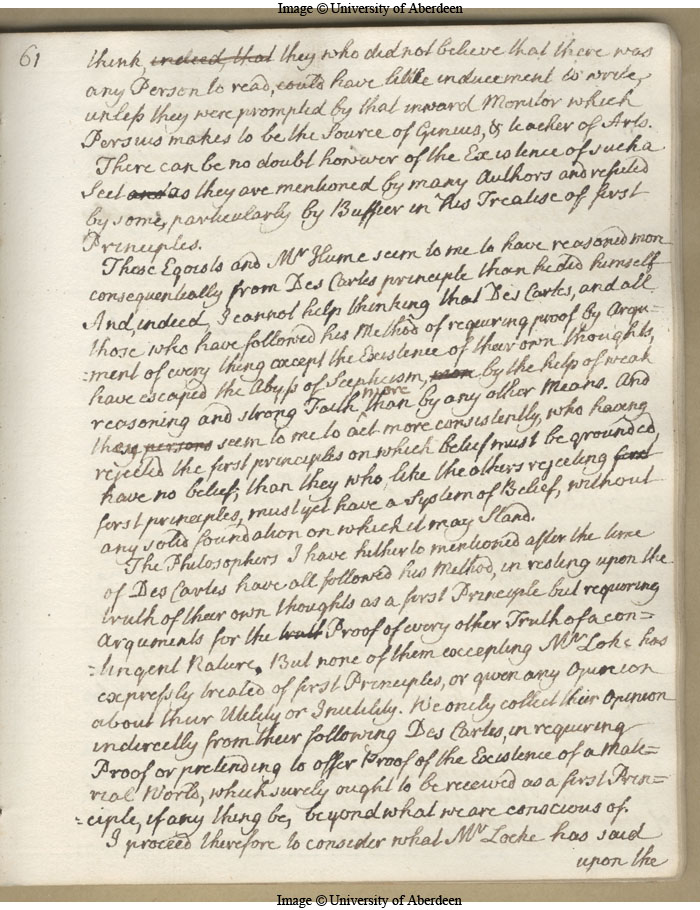 Image © University of Aberdeen
61
think, indeed, that they who did not believe that there was
any Person to read, could have little inducement to write,
unless they were prompted by that inward Monitor which
Persius makes to be the Source of Genius, & teacher of Arts.
There can be no doubt however of the Existence of such a
Sect and as they are mentioned by many Authors and refuted
by some, particularly by Buffier in his Treatise of first
Principles.
These Egoists and Mr Hume seem to me to have reasoned more
consequentially from Des Cartes principle than he did himself
And, indeed, I cannot help thinking that Des Cartes, and all
those who have followed his Method of requiring proof by Argu=
=ment of every thing except the Existence of their own thoughts,
have escaped the Abyss of Scepticism, more by the help of weak
reasoning and strong Faith more than by any other Means. And
these persons seem to me to act more consistently, who having
rejected the first principles on which belief must be grounded,
have no belief; than they who, like the others rejecting first
first principles, must yet have a System of Belief, without
any solid foundation on which it may Stand.
The Philosophers I have hitherto mentioned after the time
of Des Cartes have all followed his Method, in resting upon the
truth of their own thoughts as a first Principle but requiring
Arguments for the truth Proof of every other Truth of a con=
=tingent Nature. But none of them excepting Mr Loke has
expressly treated of first Principles, or given any Opinion
about their Utility or Inutility. We onely collect their Opinion
indirectly from their following Des Cartes, in requiring
Proof or pretending to offer Proof of the Existence of a Mate=
rial World, which surely ought to be received as a first Prin=
=ciple, if any thing be, beyond what we are conscious of.
I proceed therefore to consider what Mr Locke has said
upon the
Image © University of Aberdeen